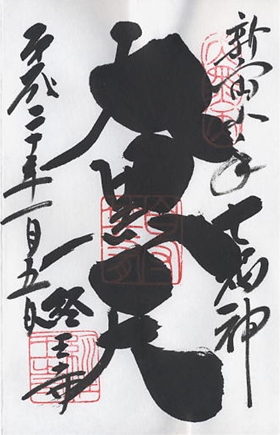 新宿山ノ手七福神
大黒天
平成二十年一月五日
経王寺